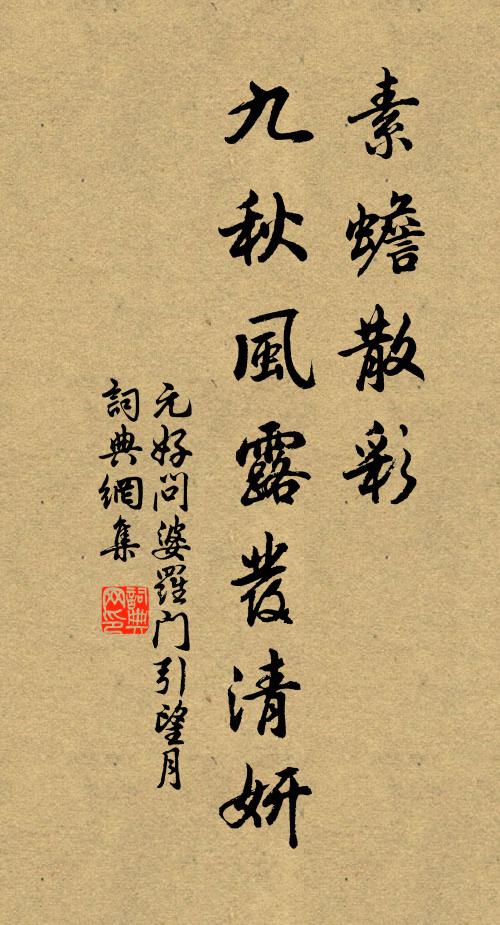 素蟾散彩
九秋風露發清妍
元好问婆羅门引望月
詞典網集
詞典
网印